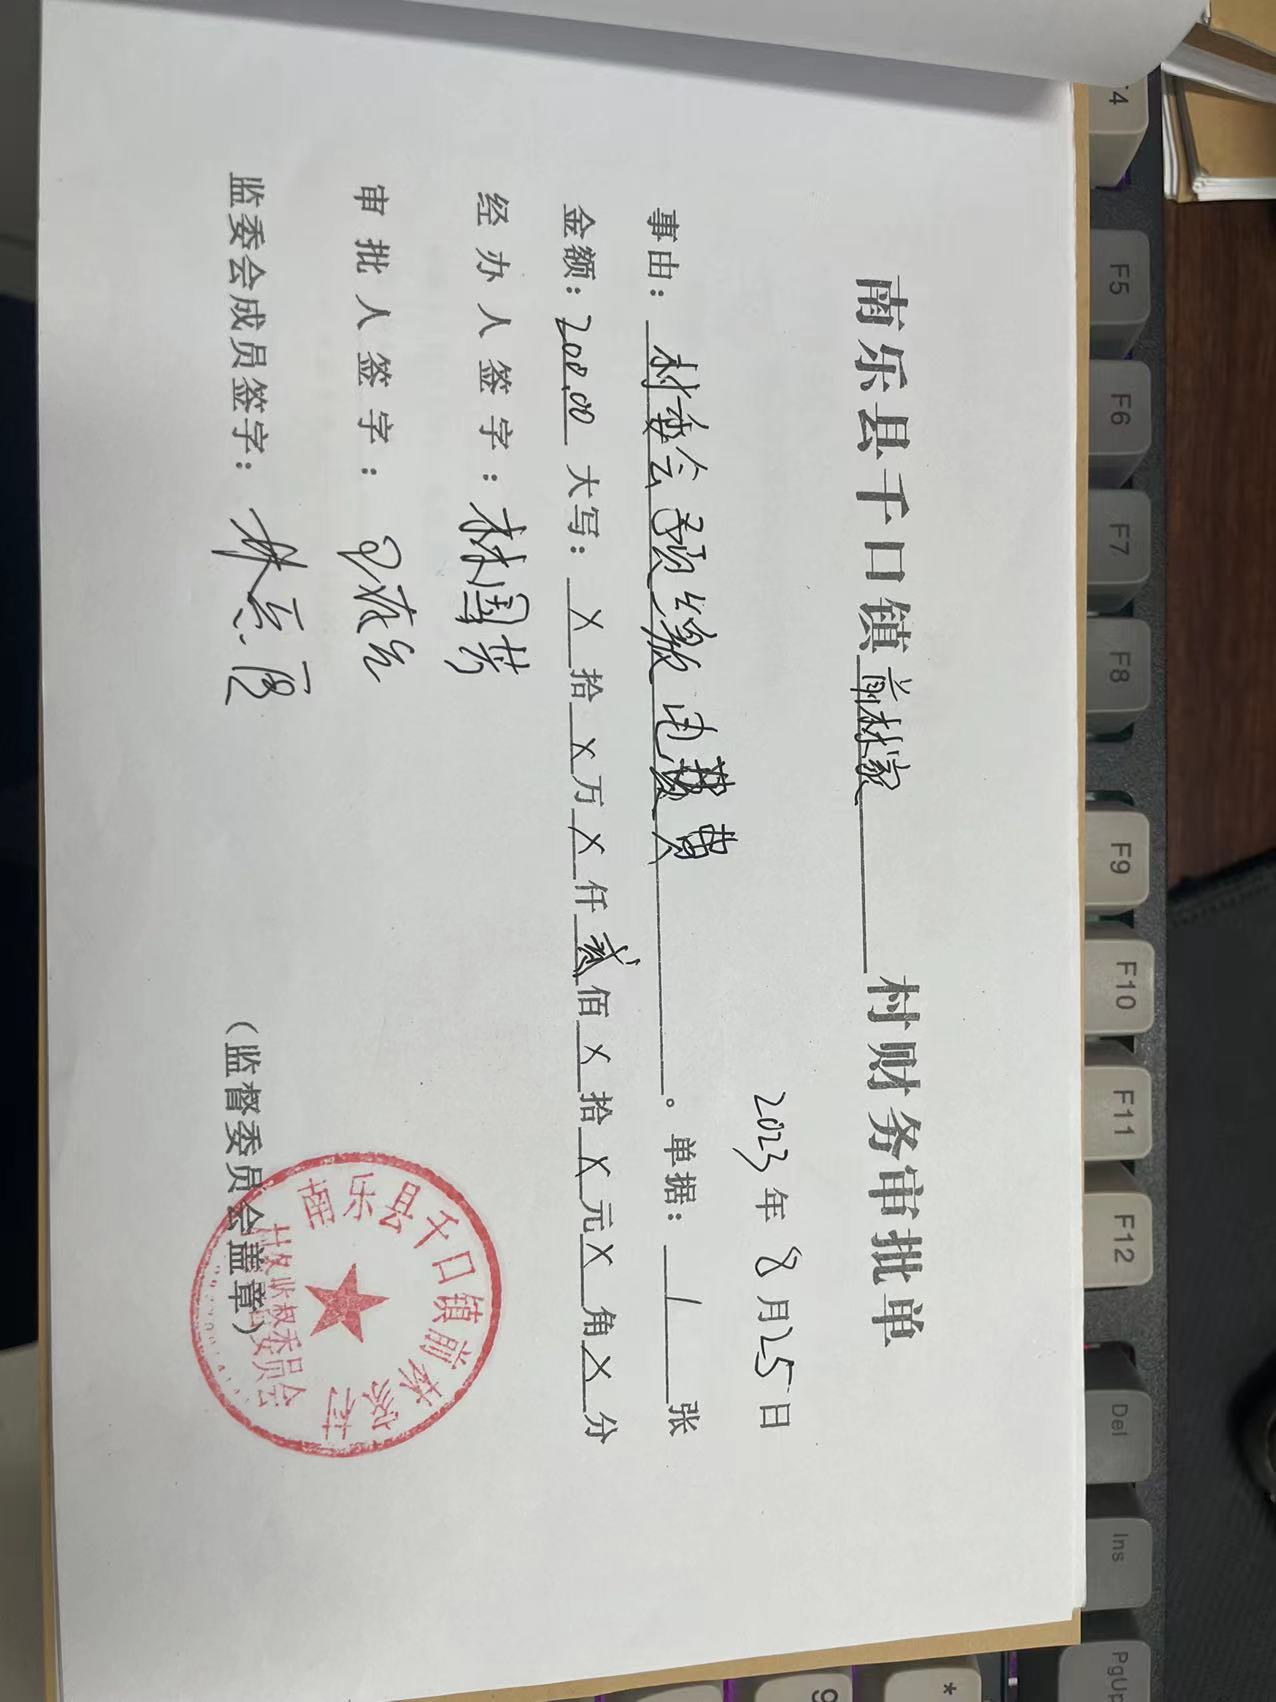 南乐县千口镇前林家村财务审批单
2023年8月25日
事由：村委会预缴电费。单据：1张
金额：200.00大写：X拾X万X仟贰佰X拾X元X角X分
经办人签字：林国芳
审批人签字：
监委会成员签字：林
（监督委员会盖章）
南乐县千口镇前林家村
村务监督委员会
F4
F5
F6
F7
F8
F9
F10
F11
F12
Del
Ins
PgUp
9
*